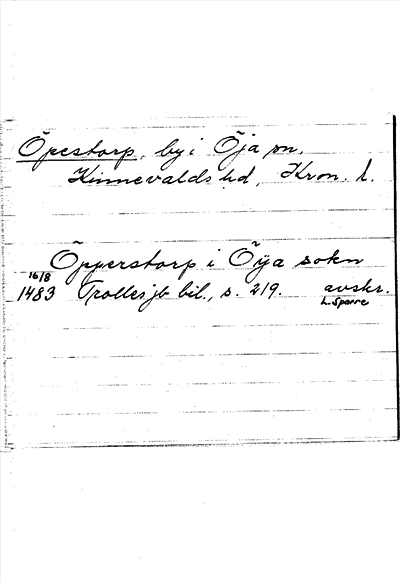 Öpestorp, by i Öja sn,
Kinnevalds hd, Kron. l.
Öpperstorp i Öya sokn
16/8
1483 Trolles jb bil., s. 219. avskr.
L. Sparre